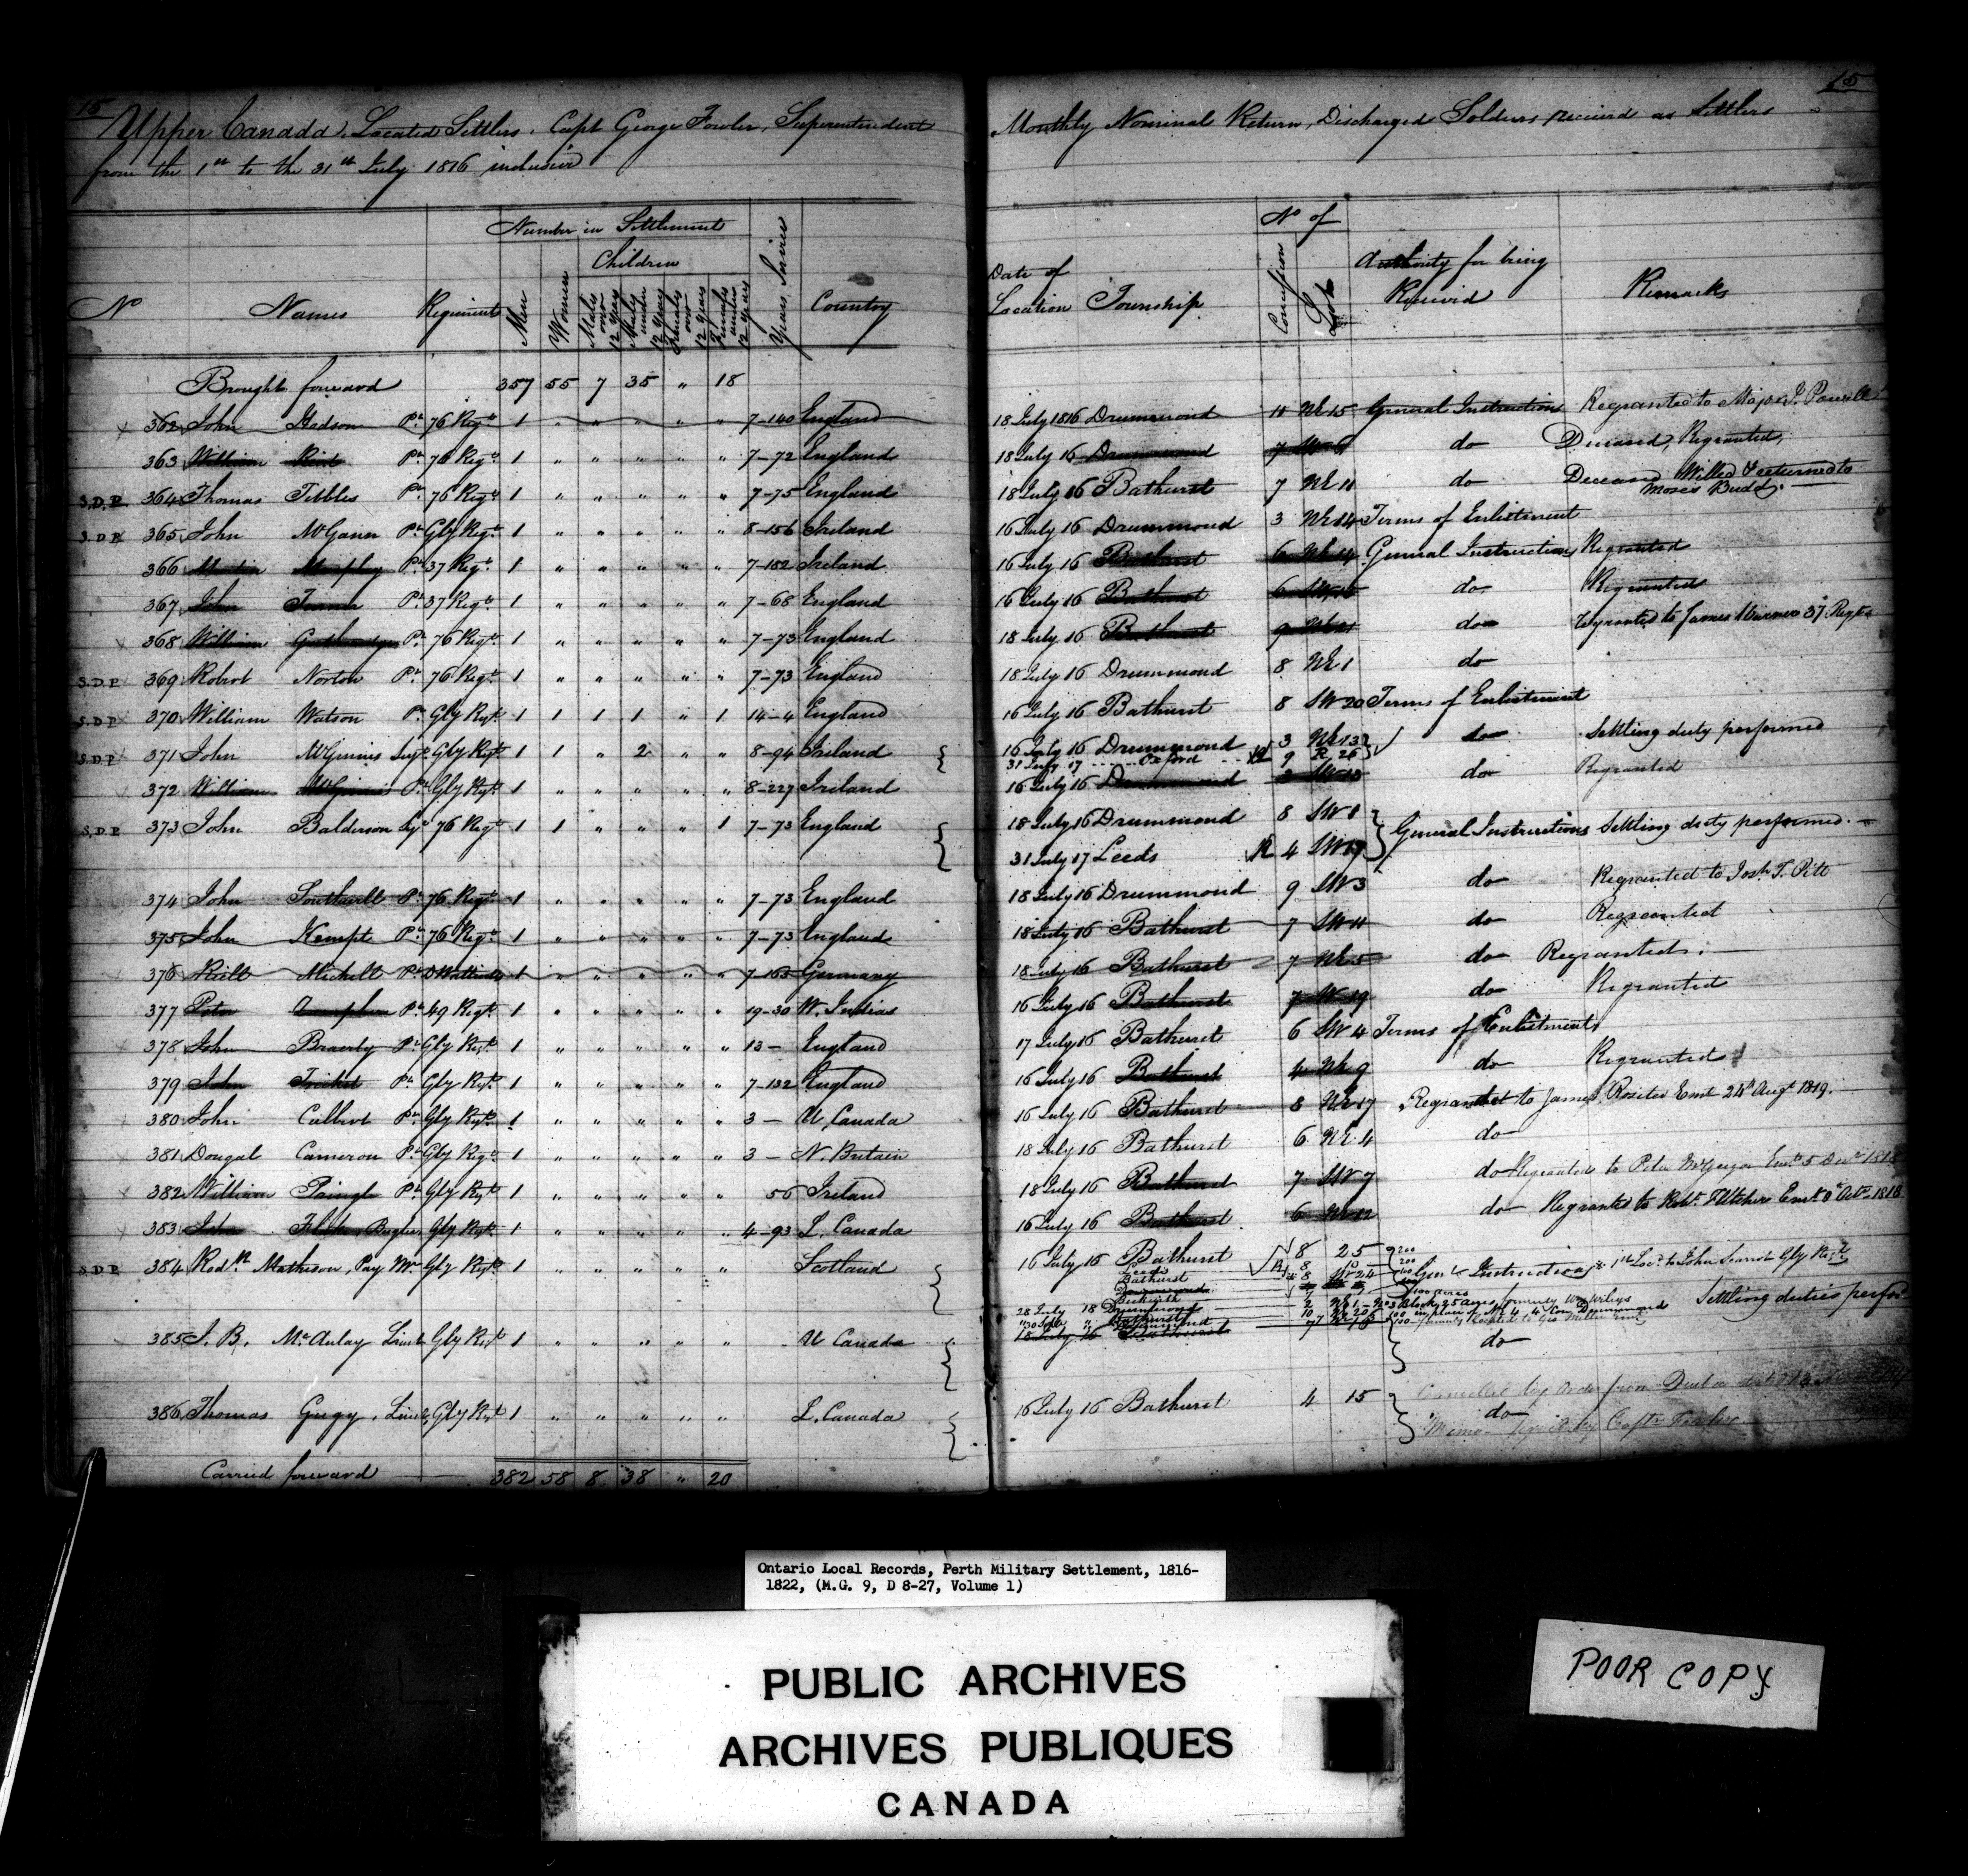 15
Upper Canada, Located Settlers, Capt George Fowler, Superintendent
from the 1st to the 31st July 1816 inclusive
No Names Regiment Number in Settlement Years Service Country
Men Women Children
Males over 12 Years Males under 12 Years Females over 12 Years Females under 12 Years
Brought forward 357 55 7 35 " 18
362 John Hodson Pt 76 Regt 1 " " " " " 7-140 England
363 William Pt 76 Regt 1 " " " " " 7-72 England
S.D.P. 364 Thomas Tibbles Pt 76 Regt 1 " " " " " 7-75 England
S.D.P. 365 John McGann Pt Gly Regt 1 " " " " " 8-156 Ireland
366 Martin Murphy Pt 37 Regt 1 " " " " " 7-182 Ireland
367 John Pt 37 Regt 1 " " " " " 7-68 England
368 William Pt 76 Regt 1 " " " " " 7-73 England
S.D.P. 369 Robert Norton Pt 76 Regt 1 " " " " " 7-73 England
S.D.P. 370 William Watson Pt Gly Regt 1 1 1 1 " 1 14-4 England
S.D.P. 371 John McGinnis Sejt Gly Regt 1 1 " 2 " " 8-94 Ireland
372 William McGinnis Pt Gly Regt 1 " " " " " 8-227 Ireland
S.D.P. 373 John Balderson Sejt 76 Regt 1 1 " " " 1 7-73 England
374 John Southwell Pt 76 Regt 1 " " " " " 7-73 England
375 John Kempt Pt 76 Regt 1 " " " " " 7-73 England
376 Michell Pt D Wattevilles 1 " " " " " 7-163 Germany
377 Peter Pt 49 Regt 1 " " " " " 19-30 W. Indias
378 John Braerly Pt Gly Regt 1 " " " " " 13 - England
379 John Pt Gly Regt 1 " " " " " 7-132 England
380 John Culbert Pt Gly Regt 1 " " " " " 3 - U, Canada
381 Dougal Cameron Pt Gly Regt 1 " " " " " 3 - N. Britain
382 William Pringle Pt Gly Regt 1 " " " " " 56 Ireland
383 John Bugler, Gly Regt 1 " " " " " 4-93 L, Canada
S.D.P. 384 Rodk Matheson, Pay Mr Gly Regt 1 " " " " " Scotland
385 J. B. McAulay Lieut Gly Regt 1 " " " " " U Canada
386 Thomas Gugy, Lieut, Gly Regt 1 " " " " " L, Canada
Carried forward 382 58 8 38 " 20
15
Monthly Nominal Return, Discharged Soldiers received as Settlers
Date of Location Township No of Concession Lots Authority for being Received Remarks
18 July 1816 Drummond 11 NE 15 General Instructions Regranted to Major J. Powell
18 July 16 Drummond 7 SW 6 do Deceased, Regranted,
18 July 16 Bathurst 7 NE 11 do Deceased Willed & returned to
Moses Budd,
16 July 16 Drummond 3 NE 14 Terms of Enlistment
16 July 16 Bathurst 6 NE General Instructions Regranted
16 July 16 Bathurst 6 SW do Regranted
18 July 16 Bathurst 9 do Regranted to James Warner 37 Regt
18 July 16 Drummond 8 NE 1 do
16 July 16 Bathurst 8 SW 20 Terms of Enlistment
16 July 16 Drummond 3 NE 13 do Settling duty performed
31 July 17 Oxford R 9 R 26
16 July 16 Drummond 3 SW 13 do Regranted
18 July 16 Drummond 8 SW 1 General Instructions Settling duty performed.
31 July 17 Leeds R 4 SW 19
18 July 16 Drummond 9 SW 3 do Regranted to Josh T. Pitt
18 July 16 Bathurst 7 SW 11 do Regranted
18 July 16 Bathurst 7 NE 5 do Regranted.
16 July 16 Bathurst 7 19 do Regranted
17 July 16 Bathurst 6 SW 4 Terms of Enlistment
16 July 16 Bathurst 4 NE 9 do Regranted
16 July 16 Bathurst 8 NE 17 Regranted to James Rositer Emt 24 Augt 1819.
18 July 16 Bathurst 6 NE 4 do
18 July 16 Bathurst 7 SW 7 do Regranted to Peter McGregor Emt 5 Decr 1818
16 July 16 Bathurst 6 NE 12 do Regranted to Robt Emt Octr 1818
16 July 16 Bathurst 8 25 200
Leeds R 8
Bathurst 8 24 Genl Instructions 1st Loc. to John Gly Regt
Beckwith Settling duties perfor
28 July 18 Drummond
18 July 16 Bathurst do
16 July 16 Bathurst 4 15 do
Cancelled by order from
Memo by Capt Fowler
Ontario Local Records, Perth Military Settlement, 1816-
1822, (M.G. 9, D 8-27, Volume 1)
PUBLIC ARCHIVES
ARCHIVES PUBLIQUES
CANADA
POOR COPY